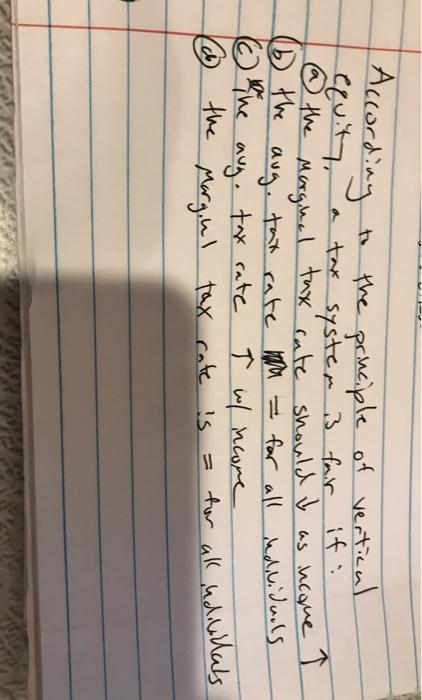 According to the principle of vertical
equity, a tax system is fair if:
(a) the marginal tax rate should ↓ as income ↑
(b) the avg. tax rate = for all individuals
(c) the avg. tax rate ↑ w/ income
(d) the marginal tax rate is = for all individuals